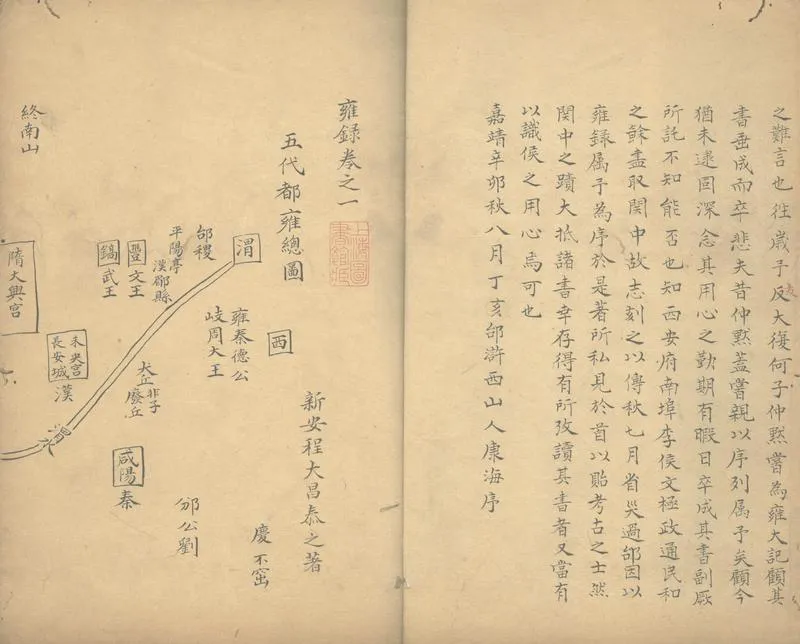 之難言也往歲予反大復何子仲黙嘗為雍大記顧其
書垂成而卒悲夫昔仲黙蓋嘗親以序列属予矣顧今
猶未逮固深念其用心之勤期有暇日卒成其書副厥
所託不知能否也知西安府南埠李侯文極政通民和
之餘盡取関中故志刻之以傳秋七月省災過邰因以
雍録属予為序於是著所私見於首以貽考古之士然
関中之蹟大抵諸書幸存得有所攷讀其書者又當有
以識侯之用心焉可也
嘉靖辛卯秋八月丁亥邰滸西山人康海序
雍録卷之一
五代都雍總圖
新安程大昌泰之著
渭
西
慶不窋
雍秦德公
岐周大王
邰稷
平陽亭
漢郿縣
豐
文王
鎬
武王
大丘非子
廢丘
邠公劉
咸陽
秦
渭水
未央宮
長安城
漢
終南山
隋大興宮